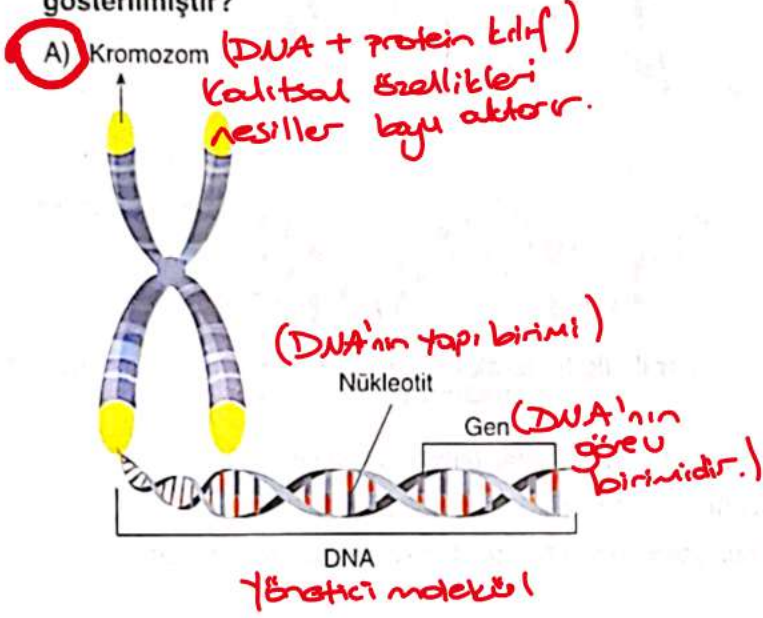 gösterilmiştir?
A) Kromozom (DNA + protein kılıf)
Kalıtsal özellikleri
nesiller boyu aktarır.
(DNA'nın yapı birimi)
Nükleotit
Gen (DNA'nın
görev
birimidir.)
DNA
Yönetici molekül